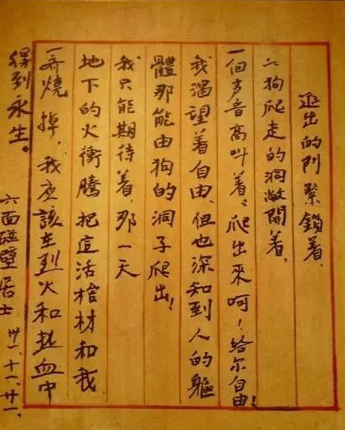 出的門緊鎖着、
为狗爬走的洞敞開着、
一個声音高叫着、爬出來呵！給尔自由！
我渴望着自由、但也深知到人的軀
體那能由狗的洞子爬出！
我只能期待着、那一天
地下的火衝騰把這活棺材和我
一齊燒掉，我應該在烈火和熱血中
得到永生。
六面碰壁居士 卅一、十一、廿一.